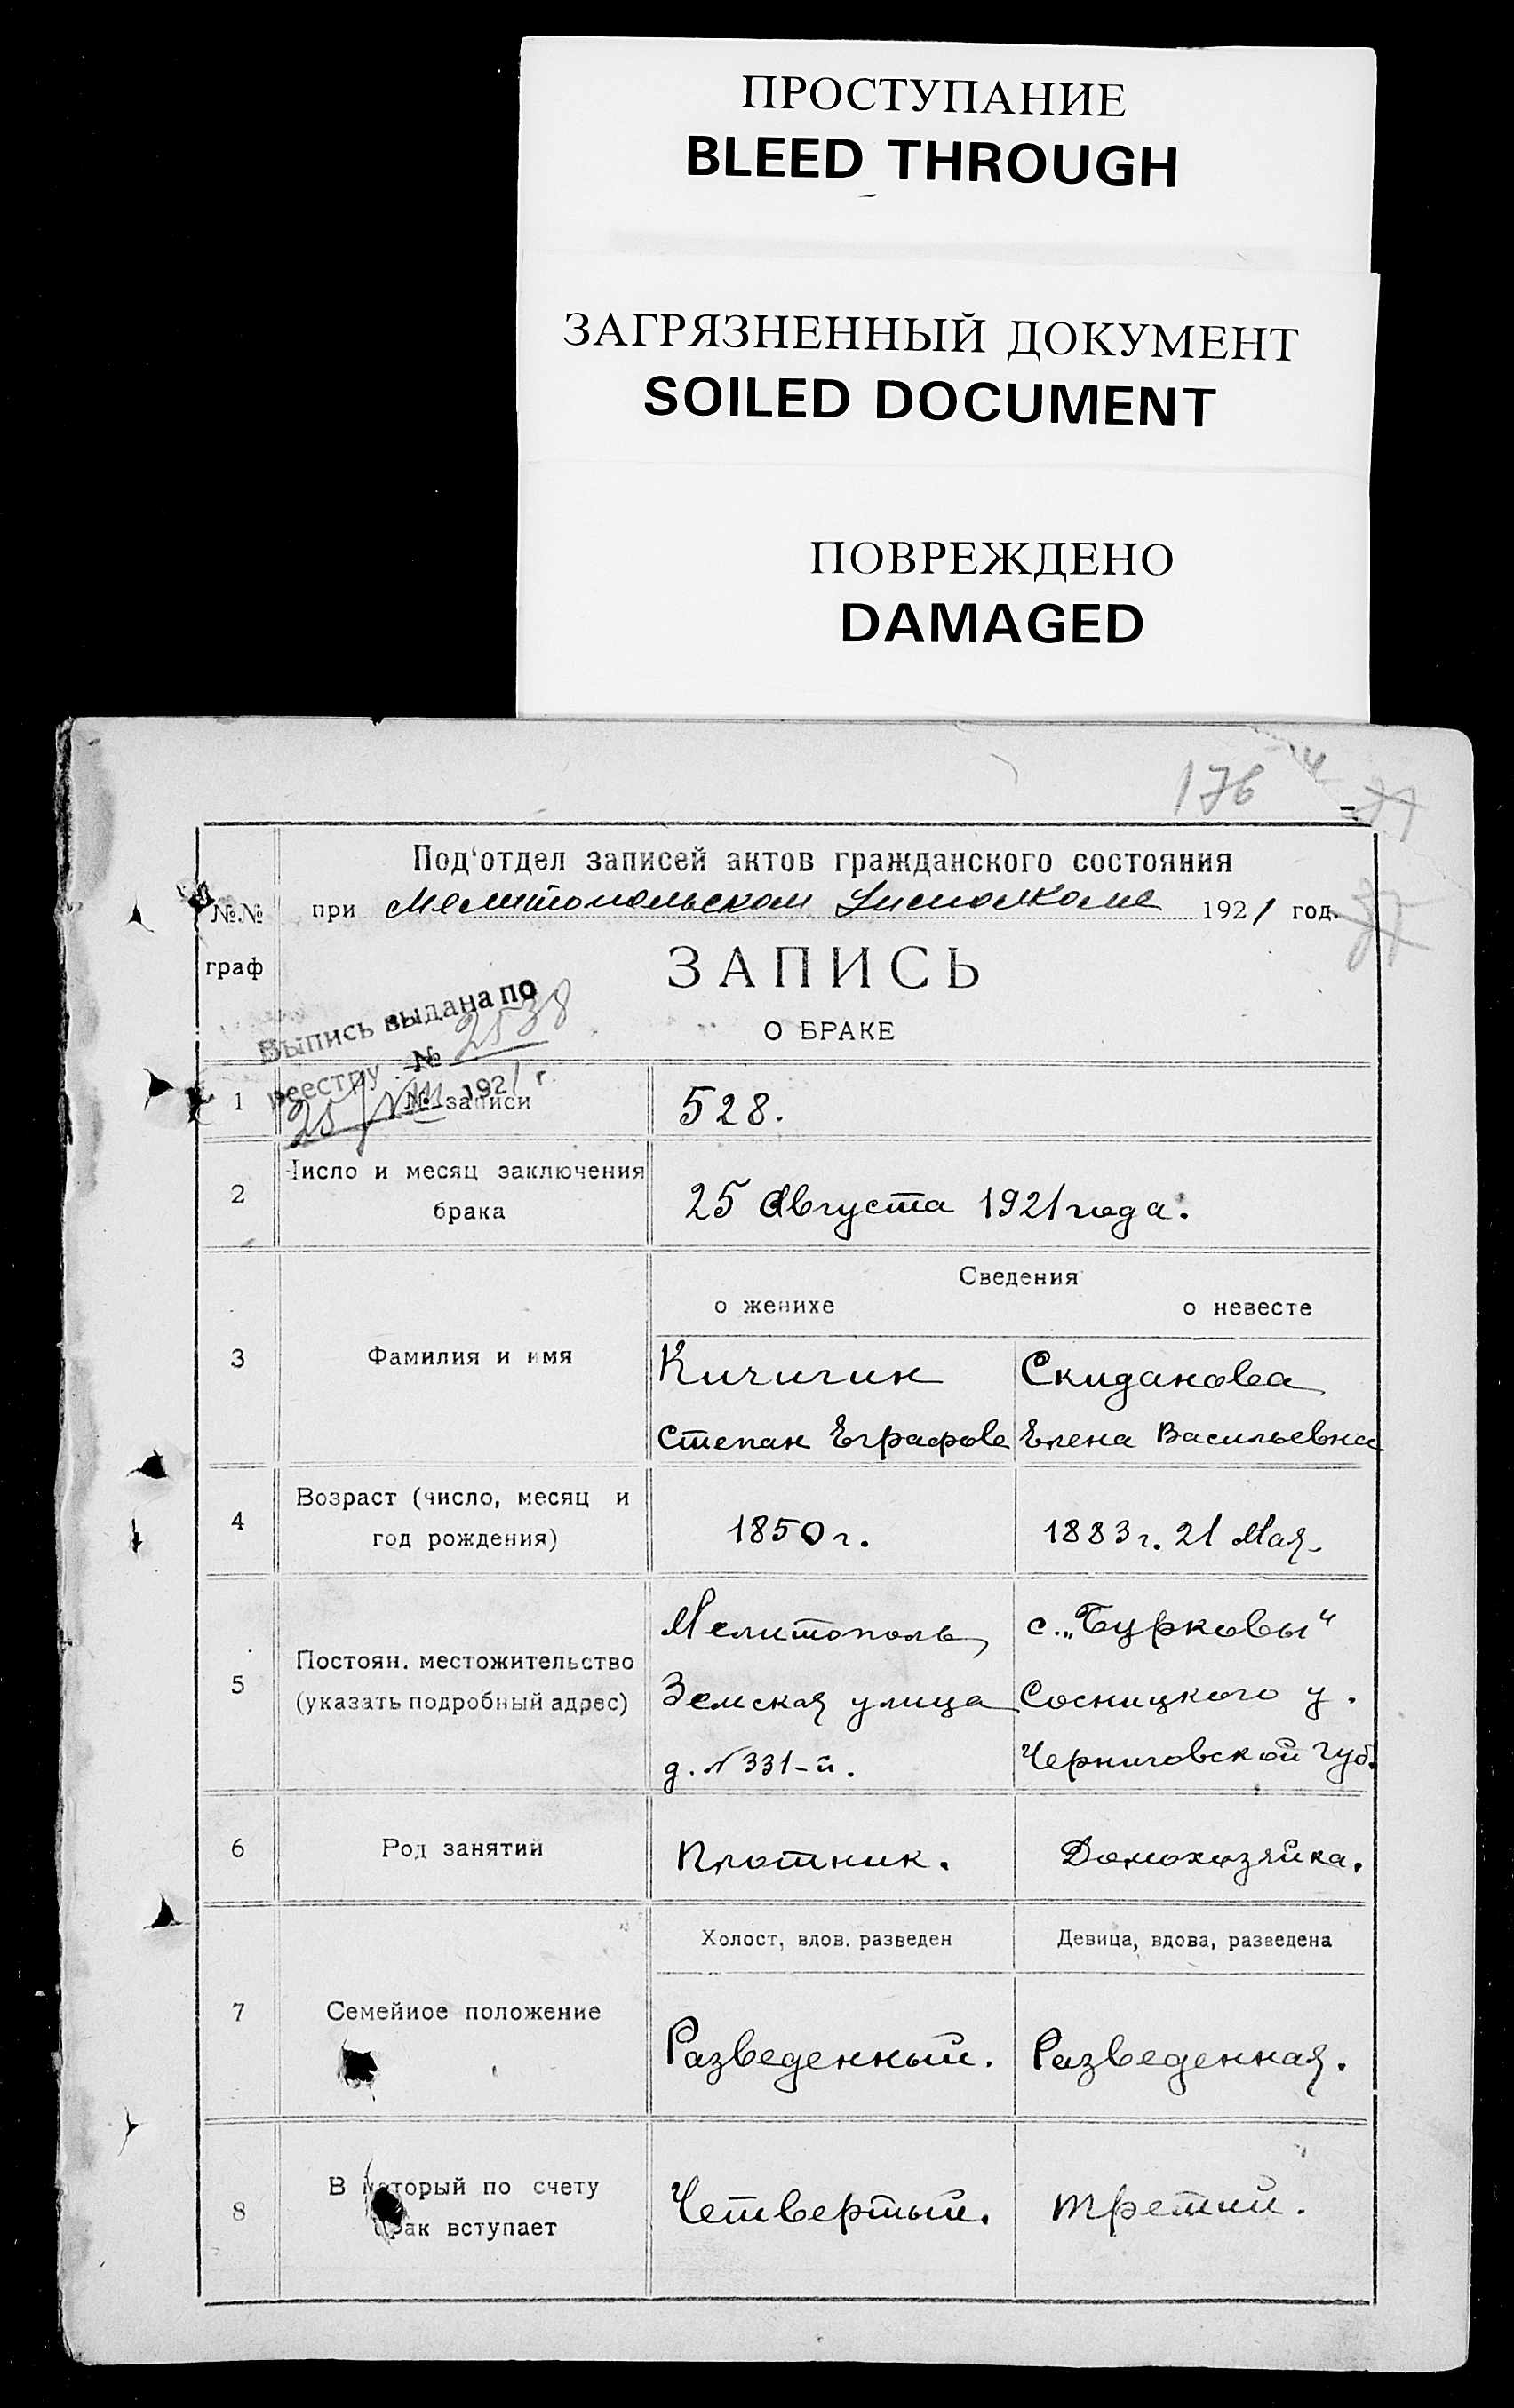 ПРОСТУПАНИЕ
BLEED THROUGH
ЗАГРЯЗНЕННЫЙ ДОКУМЕНТ
SOILED DOCUMENT
ПОВРЕЖДЕНО
DAMAGED
176
77
37
Под‘отдел записей актов гражданского состояния
№.№ граф
при Мелитопольском Исполкоме 1921 год.
ЗАПИСЬ
О БРАКЕ
Выпись выдана по
реестру № 2538
25/VIII 1921 г.
1 № записи 528.
2 Число и месяц заключения
брака
25 Августа 1921 года.
Сведения
о женихе о невесте
3 Фамилия и имя
Кичигин Скиданова
Степан Еграфов Елена Васильевна
4 Возраст (число, месяц и
год рождения)
1850 г. 1883 г. 21 Мая.
5 Постоян. местожительство
(указать подробный адрес)
Мелитополь, с. „Бурковы“
Земская улица Сосницкого у.
д. № 331-й. Черниговской губ.
6 Род занятий Плотник. Домохозяйка.
Холост, вдов. разведен Девица, вдова, разведена
7 Семейное положение
Разведенный. Разведенная.
8 В который по счету
брак вступает
Четвертый. Третий.